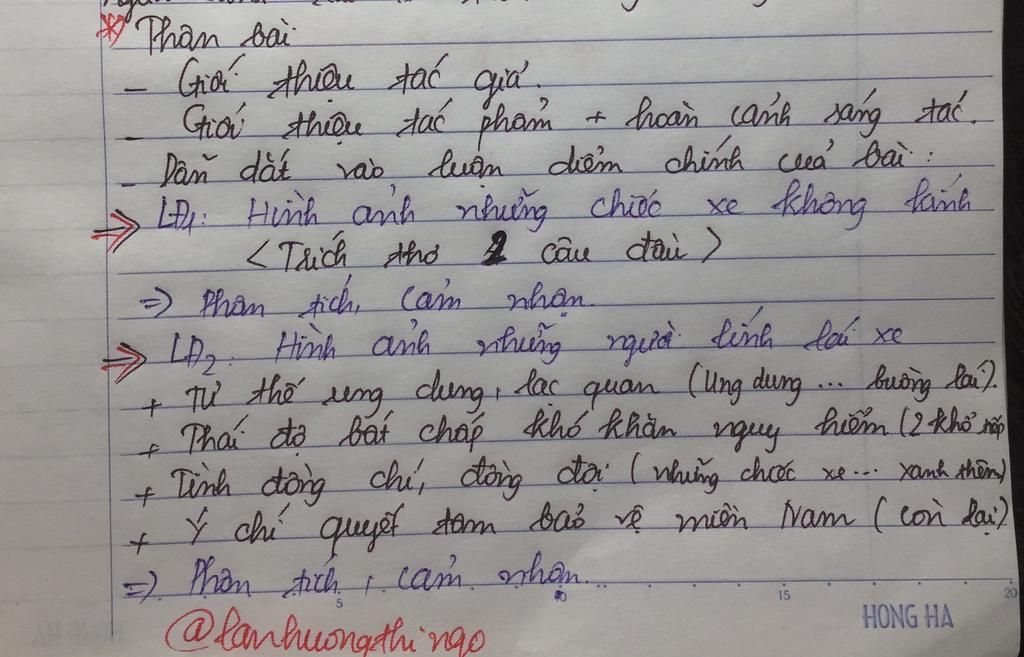 * Phân bài
- Giới thiệu tác giả.
- Giới thiệu tác phẩm + hoàn cảnh sáng tác.
- Dẫn dắt vào luận điểm chính của bài:
=> LĐ1: Hình ảnh những chiếc xe không kính
< Trích thơ 2 câu đầu >
=> Phân tích, cảm nhận.
=> LĐ2: Hình ảnh những người lính lái xe
+ Tư thế ung dung, lạc quan (Ung dung ... buồng lái).
+ Thái độ bất chấp khó khăn nguy hiểm (2 khổ tiếp
+ Tình đồng chí, đồng đội (những chiếc xe... xanh thêm)
+ Ý chí quyết tâm bảo vệ miền Nam (còn lại)
=> Phân tích, cảm nhận...
5 10 15 20
HONG HA
@lanhuongthingo